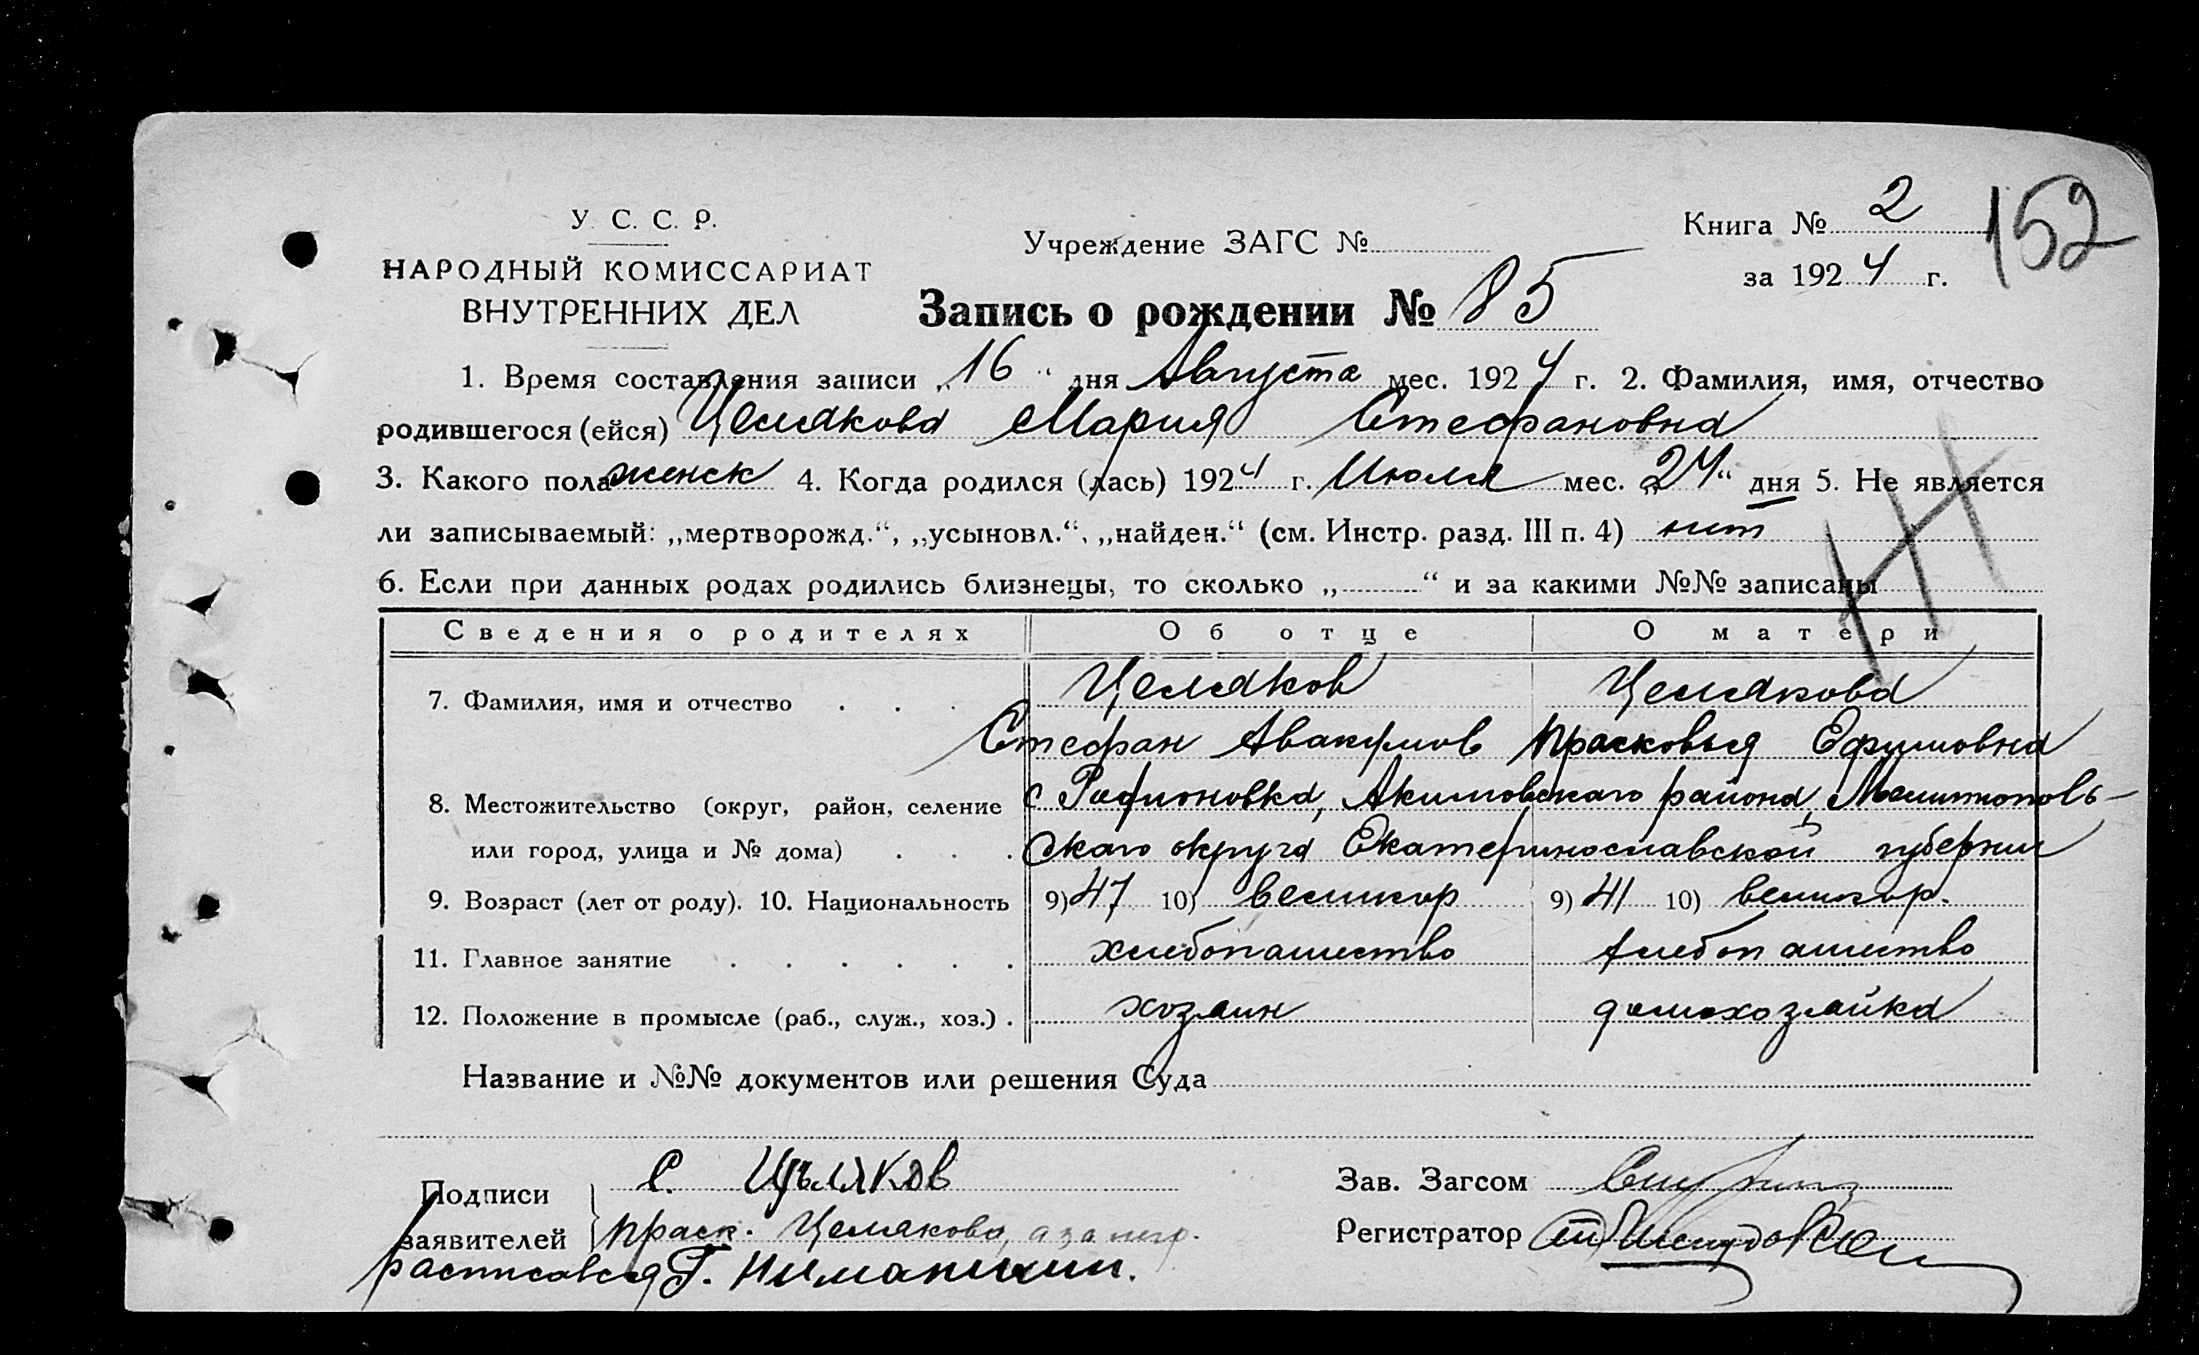 У. С. С. Р.
НАРОДНЫЙ КОМИССАРИАТ
ВНУТРЕННИХ ДЕЛ
Учреждение ЗАГС №
Книга № 2
за 1924 г.
152
Запись о рождении № 85
1. Время составления записи „16“ дня Августа мес. 1924 г. 2. Фамилия, имя, отчество
родившегося (ейся) Целякова Мария Стефановна
3. Какого пола женск 4. Когда родился (лась) 1924 г. Июля мес. „24“ дня 5. Не является
ли записываемый: „мертворожд.“, „усыновл.“, „найден.“ (см. Инстр. разд. III п. 4) нет
6. Если при данных родах родились близнецы, то сколько „ “ и за какими №№ записаны
Сведения о родителях Об отце О матери
7. Фамилия, имя и отчество Целяков Целякова
Стефан Авакумов Прасковья Ефимовна
8. Местожительство (округ, район, селение с Родионовка, Акимовскаго района, Мелитополь-
или город, улица и № дома) скаго округа Екатеринославской губернии
9. Возраст (лет от роду). 10. Национальность 9) 47 10) великор 9) 41 10) великор.
11. Главное занятие хлебопашество хлебопашество
12. Положение в промысле (раб., служ., хоз.) хозяин домохозяйка
Название и №№ документов или решения Суда
Подписи С. Цъляков
заявителей Праск. Целякова, а за негр.
расписался Г.
Зав. Загсом
Регистратор